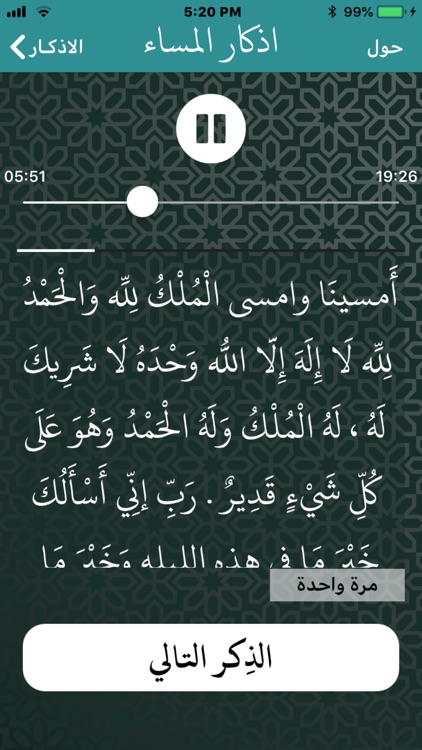 5:20 PM
99%
حول
اذكار المساء
الاذكار
05:51
19:26
أَمسينَا وامسى الْمُلْكُ لِلّه وَالْحَمْدُ
لِلّه لَا إِلَهَ إِلّا اللّه وَحْدَهُ لَا شَرِيكَ
لَهُ ، لَهُ الْمُلْكُ وَلَهُ الْحَمْدُ وَهُوَ عَلَى
كُلِّ شَيْءٍ قَدِيرٌ . رَبِّ إنِّي أَسْأَلُكَ
خَيْرَ مَا في هذه الليله وَخَيْرَ مَا
مرة واحدة
الذِكر التالي